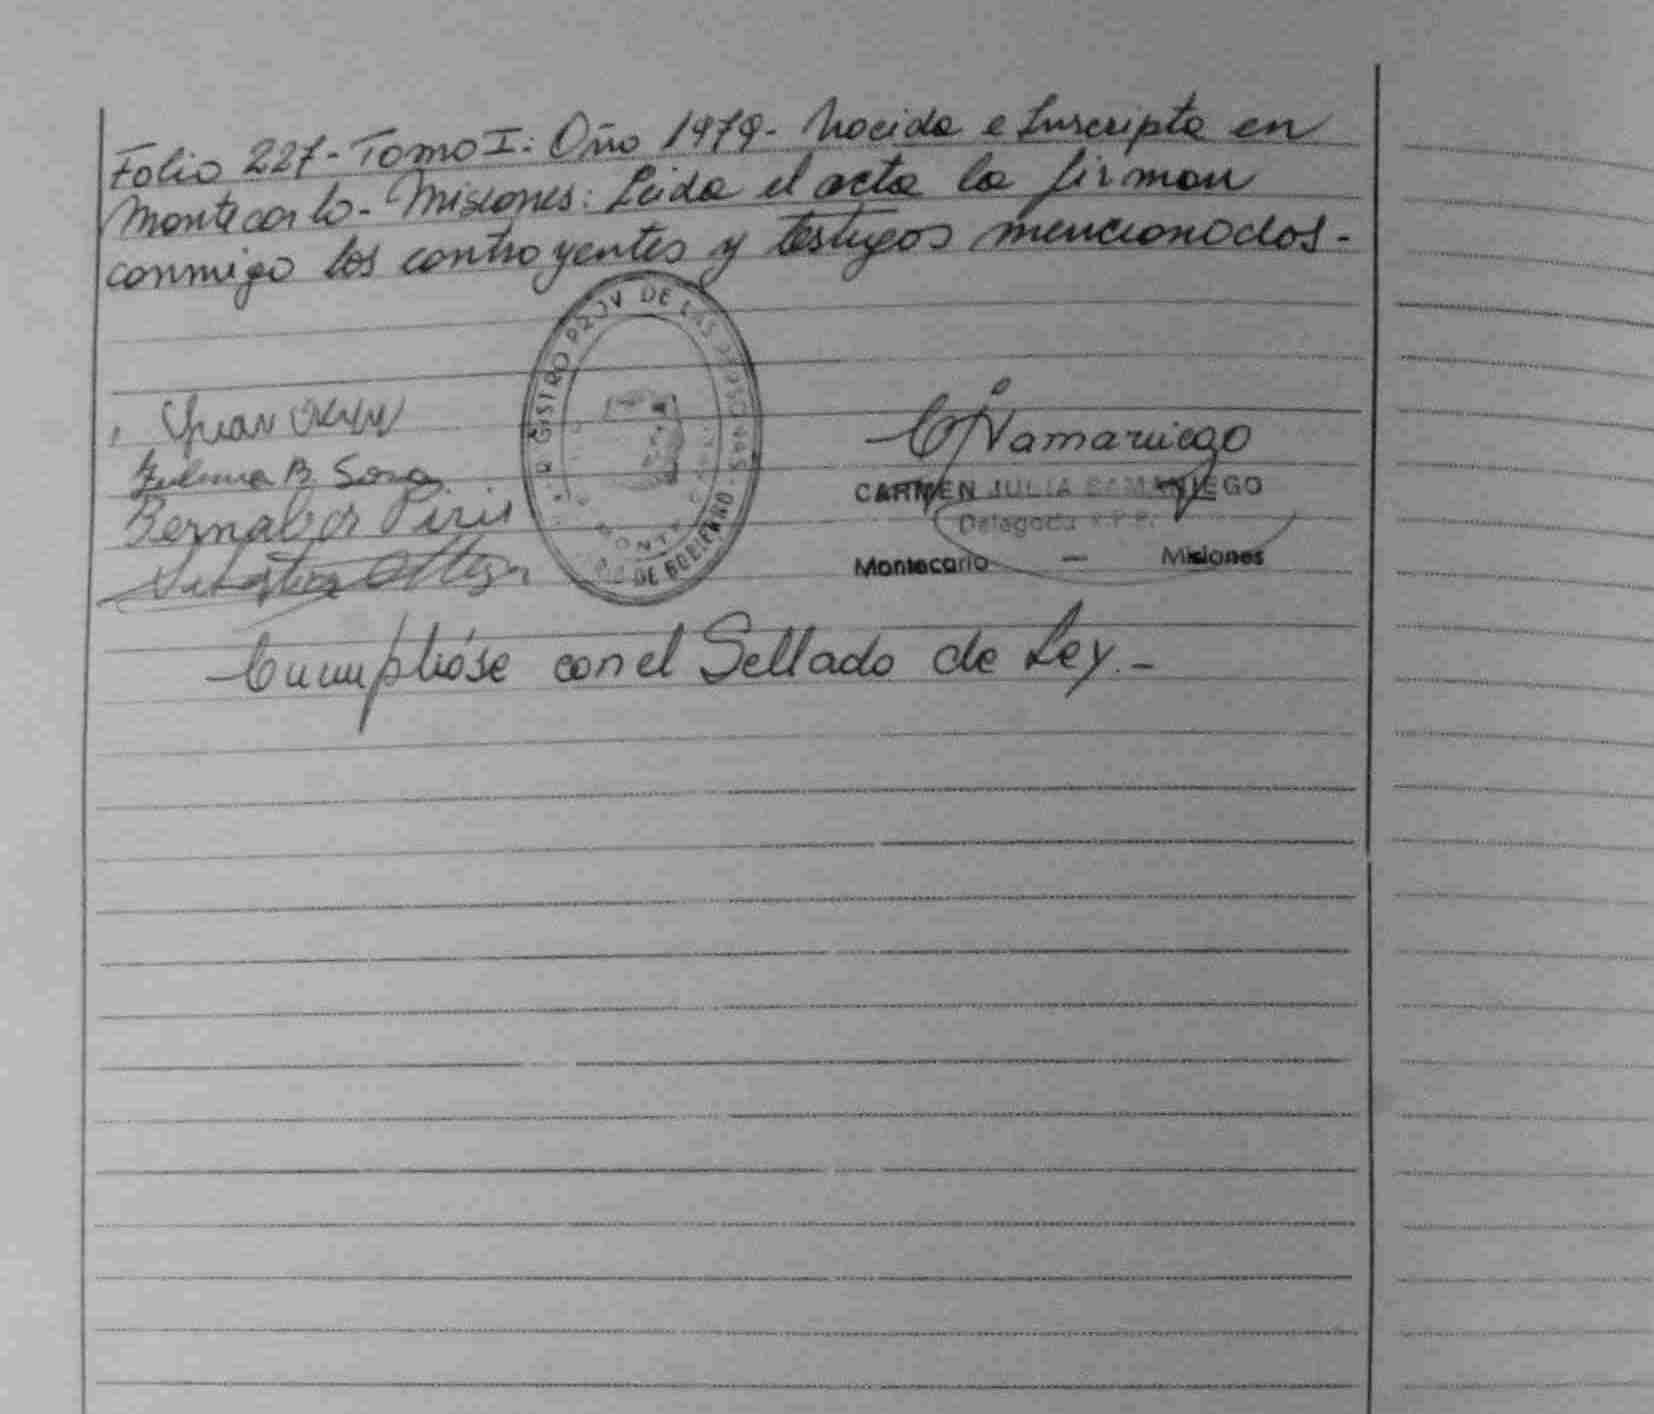 Folio 227- Tomo I: Año 1979- Nacida e Inscripta en
Montecarlo- Misiones: Leida el acta la firman
conmigo los contrayentes y testigos mencionados-
Juan
B. Sosa
Bernabé Piris
REGISTRO PROV DE LAS PERSONAS
DE GOBIERNO
CJSamaniego
CARMEN JULIA SAMANIEGO
Delegada R.P.P.
Montecarlo — Misiones
Cumplióse con el Sellado de Ley.-